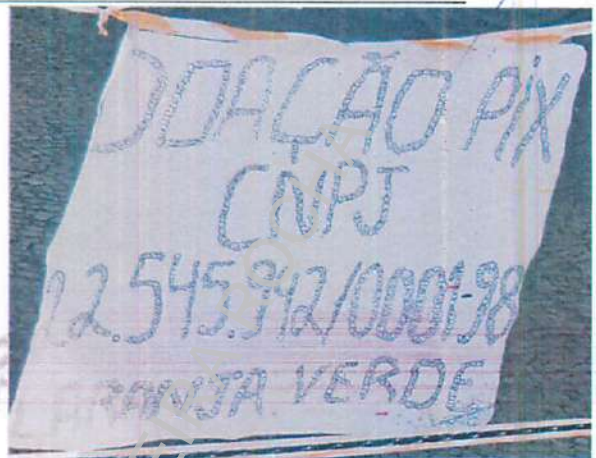 DOAÇÃO PIX
CNPJ
22.545.942/0001-98
VERDE